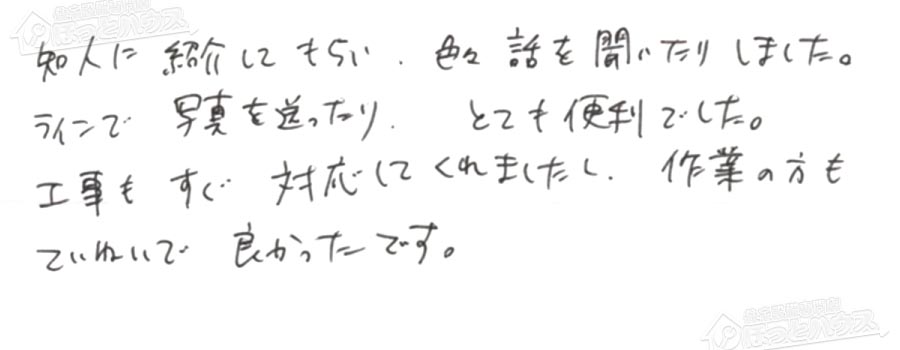 知人に紹介してもらい、色々話を聞いたりしました。
ラインで写真を送ったり、とても便利でした。
工事もすぐ対応してくれましたし、作業の方も
ていねいで良かったです。
ほっとハウス
ほっとハウス